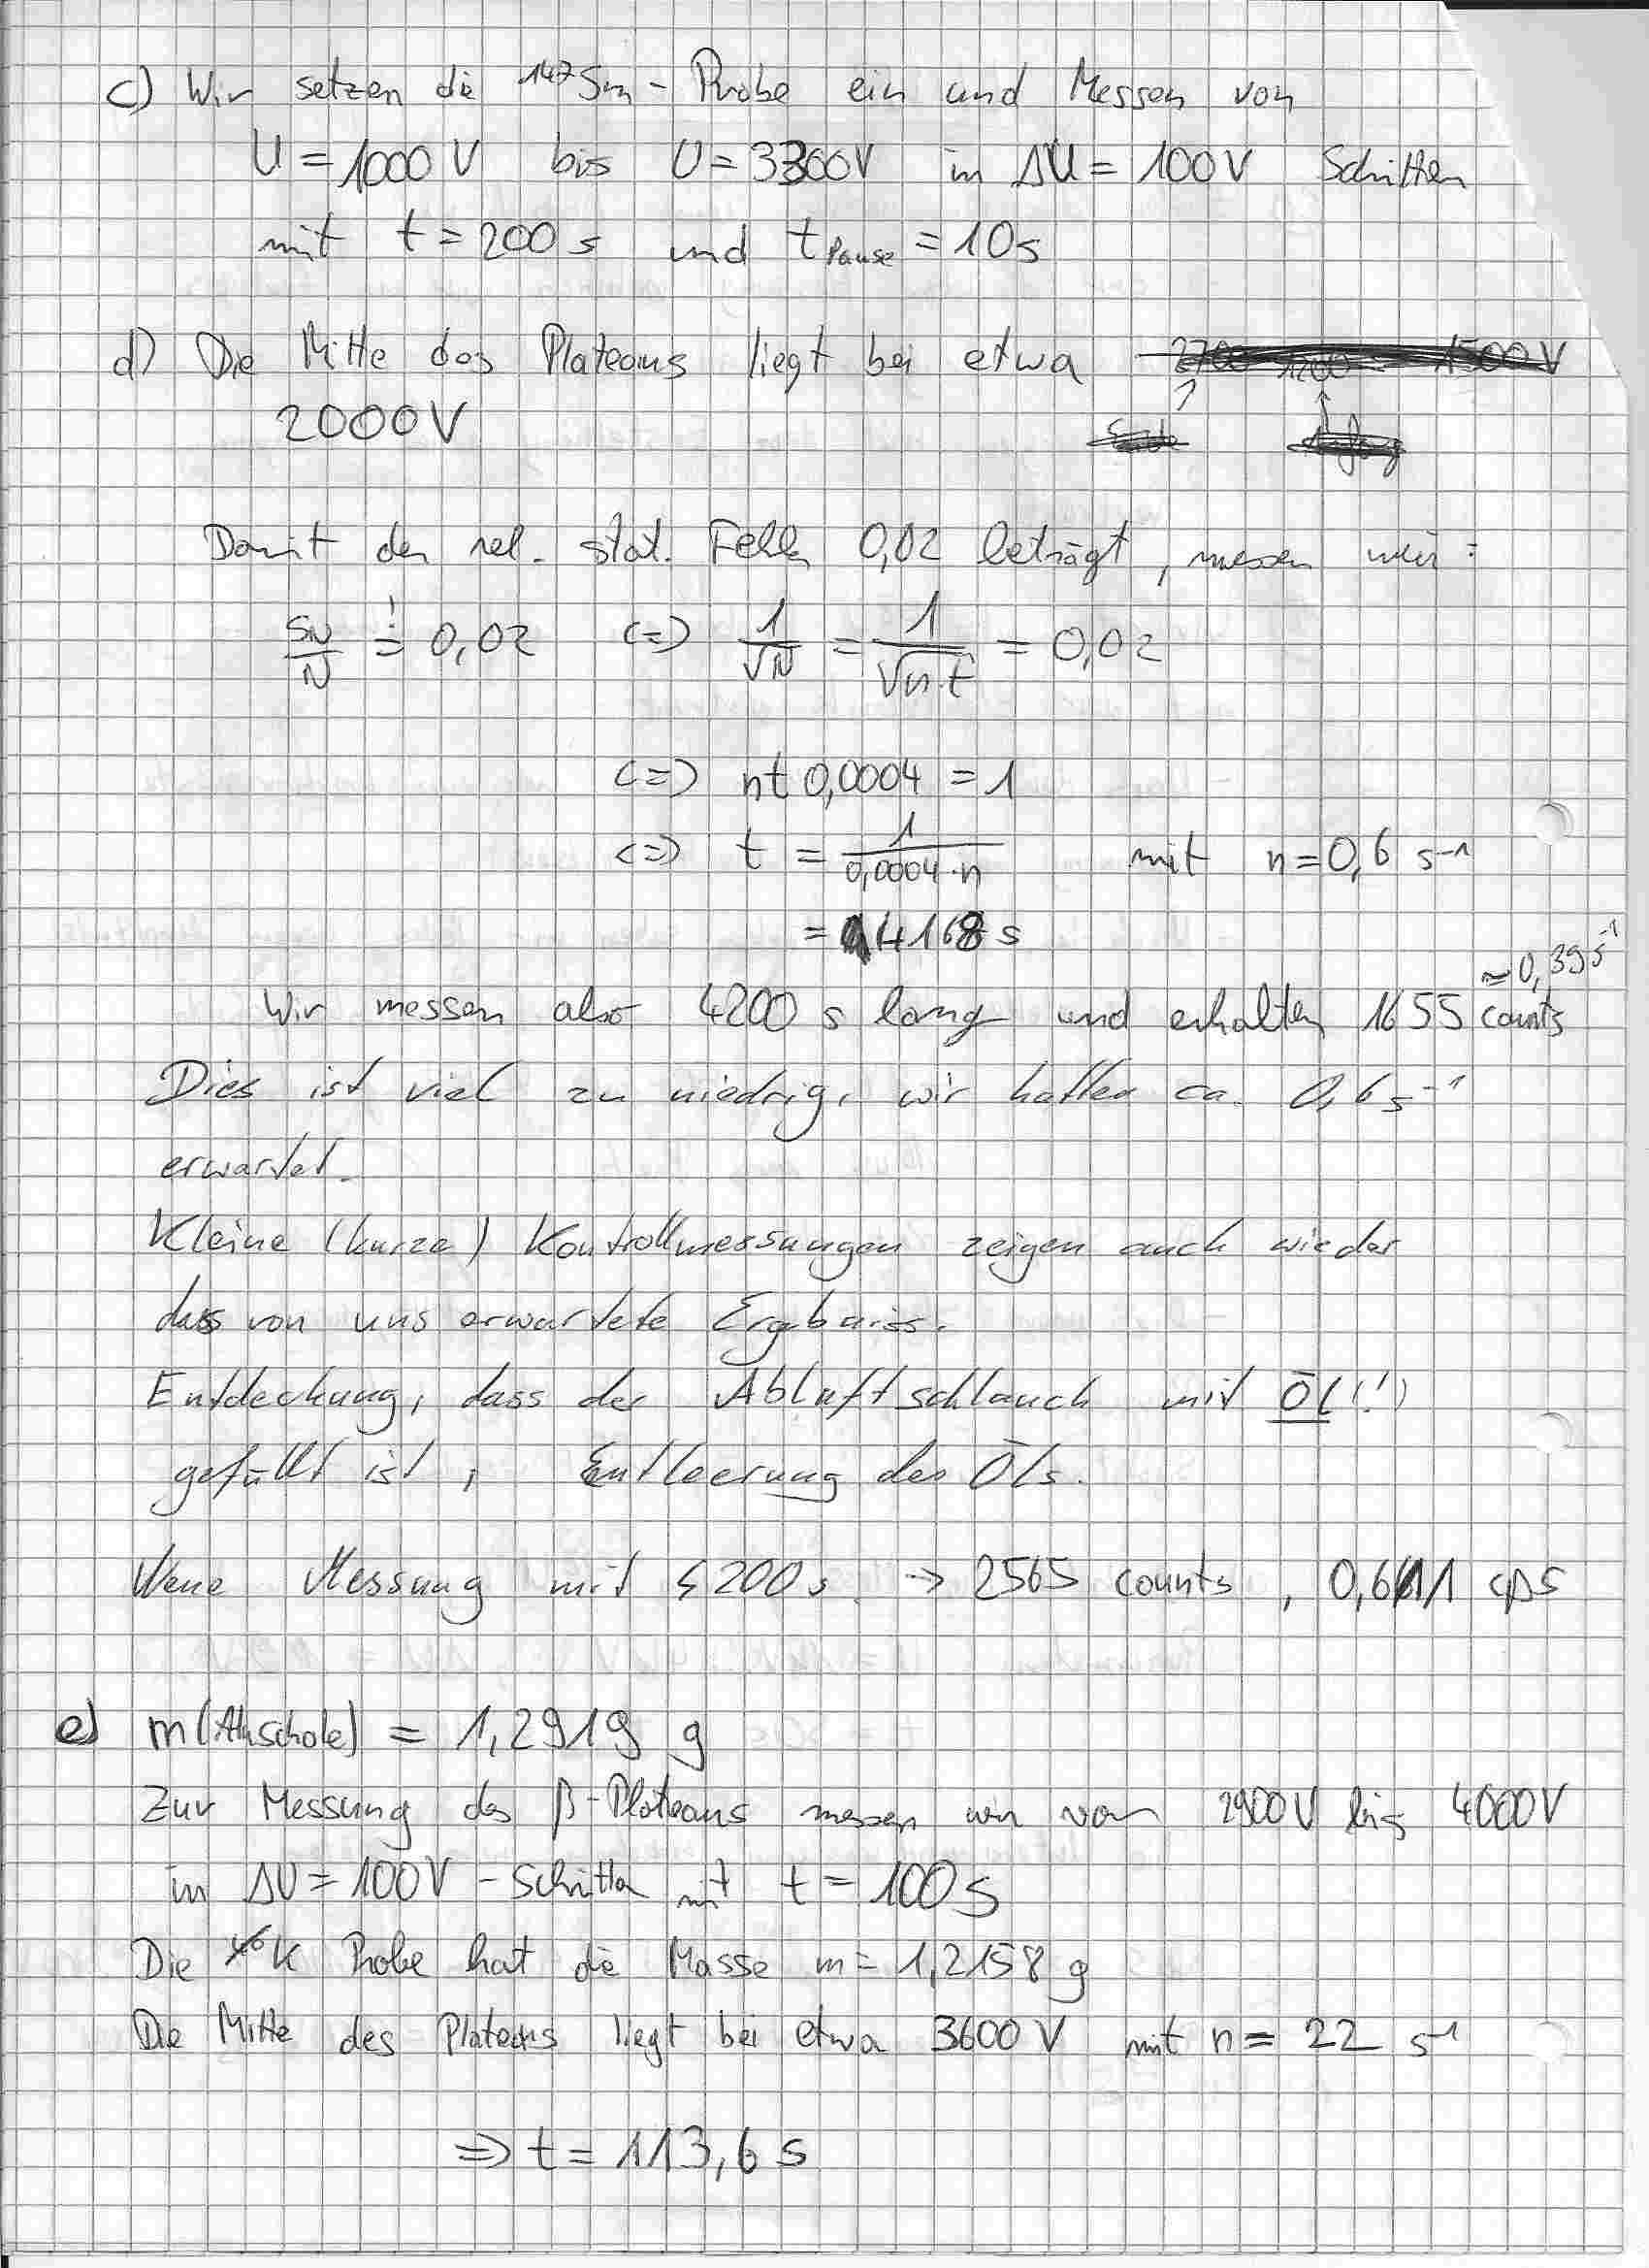 c) Wir setzen die ¹⁴⁷Sm-Probe ein und Messen von
U = 1000 V bis U = 3300V in ΔU = 100V Schritten
mit t = 200 s und t Pause = 10s
d) Die Mitte des Plateaus liegt bei etwa 2700 1200 1500V
2000V
Damit der rel. stat. Fehler 0,02 beträgt, messen wir:
SN/N =! 0,02 <=> 1/√N = 1/√n·t = 0,02
<=> nt 0,0004 = 1
<=> t = 1/0,0004·n mit n=0,6 s⁻¹
= 4168 s
≈0,39s⁻¹
Wir messen also 4200 s lang und erhalten 1655 counts
Dies ist viel zu niedrig, wir hatten ca. 0,6 s⁻¹
erwartet.
Kleine (kurze) Kontrollmessungen zeigen auch wieder
das von uns erwartete Ergebniss.
Entdeckung, dass der Abluftschlauch mit Öl(!)
gefüllt ist, Entleerung des Öls.
Neue Messung mit 4200s → 2565 counts, 0,611 cps
e) m(Aluschale) = 1,2919 g
Zur Messung des β-Plateaus messen wir von 2900V bis 4000V
in ΔU = 100V - Schritten mit t = 100s
Die ⁴⁰K Probe hat die Masse m = 1,2158 g
Die Mitte des Plateaus liegt bei etwa 3600 V mit n = 22 s⁻¹
=> t = 113,6 s